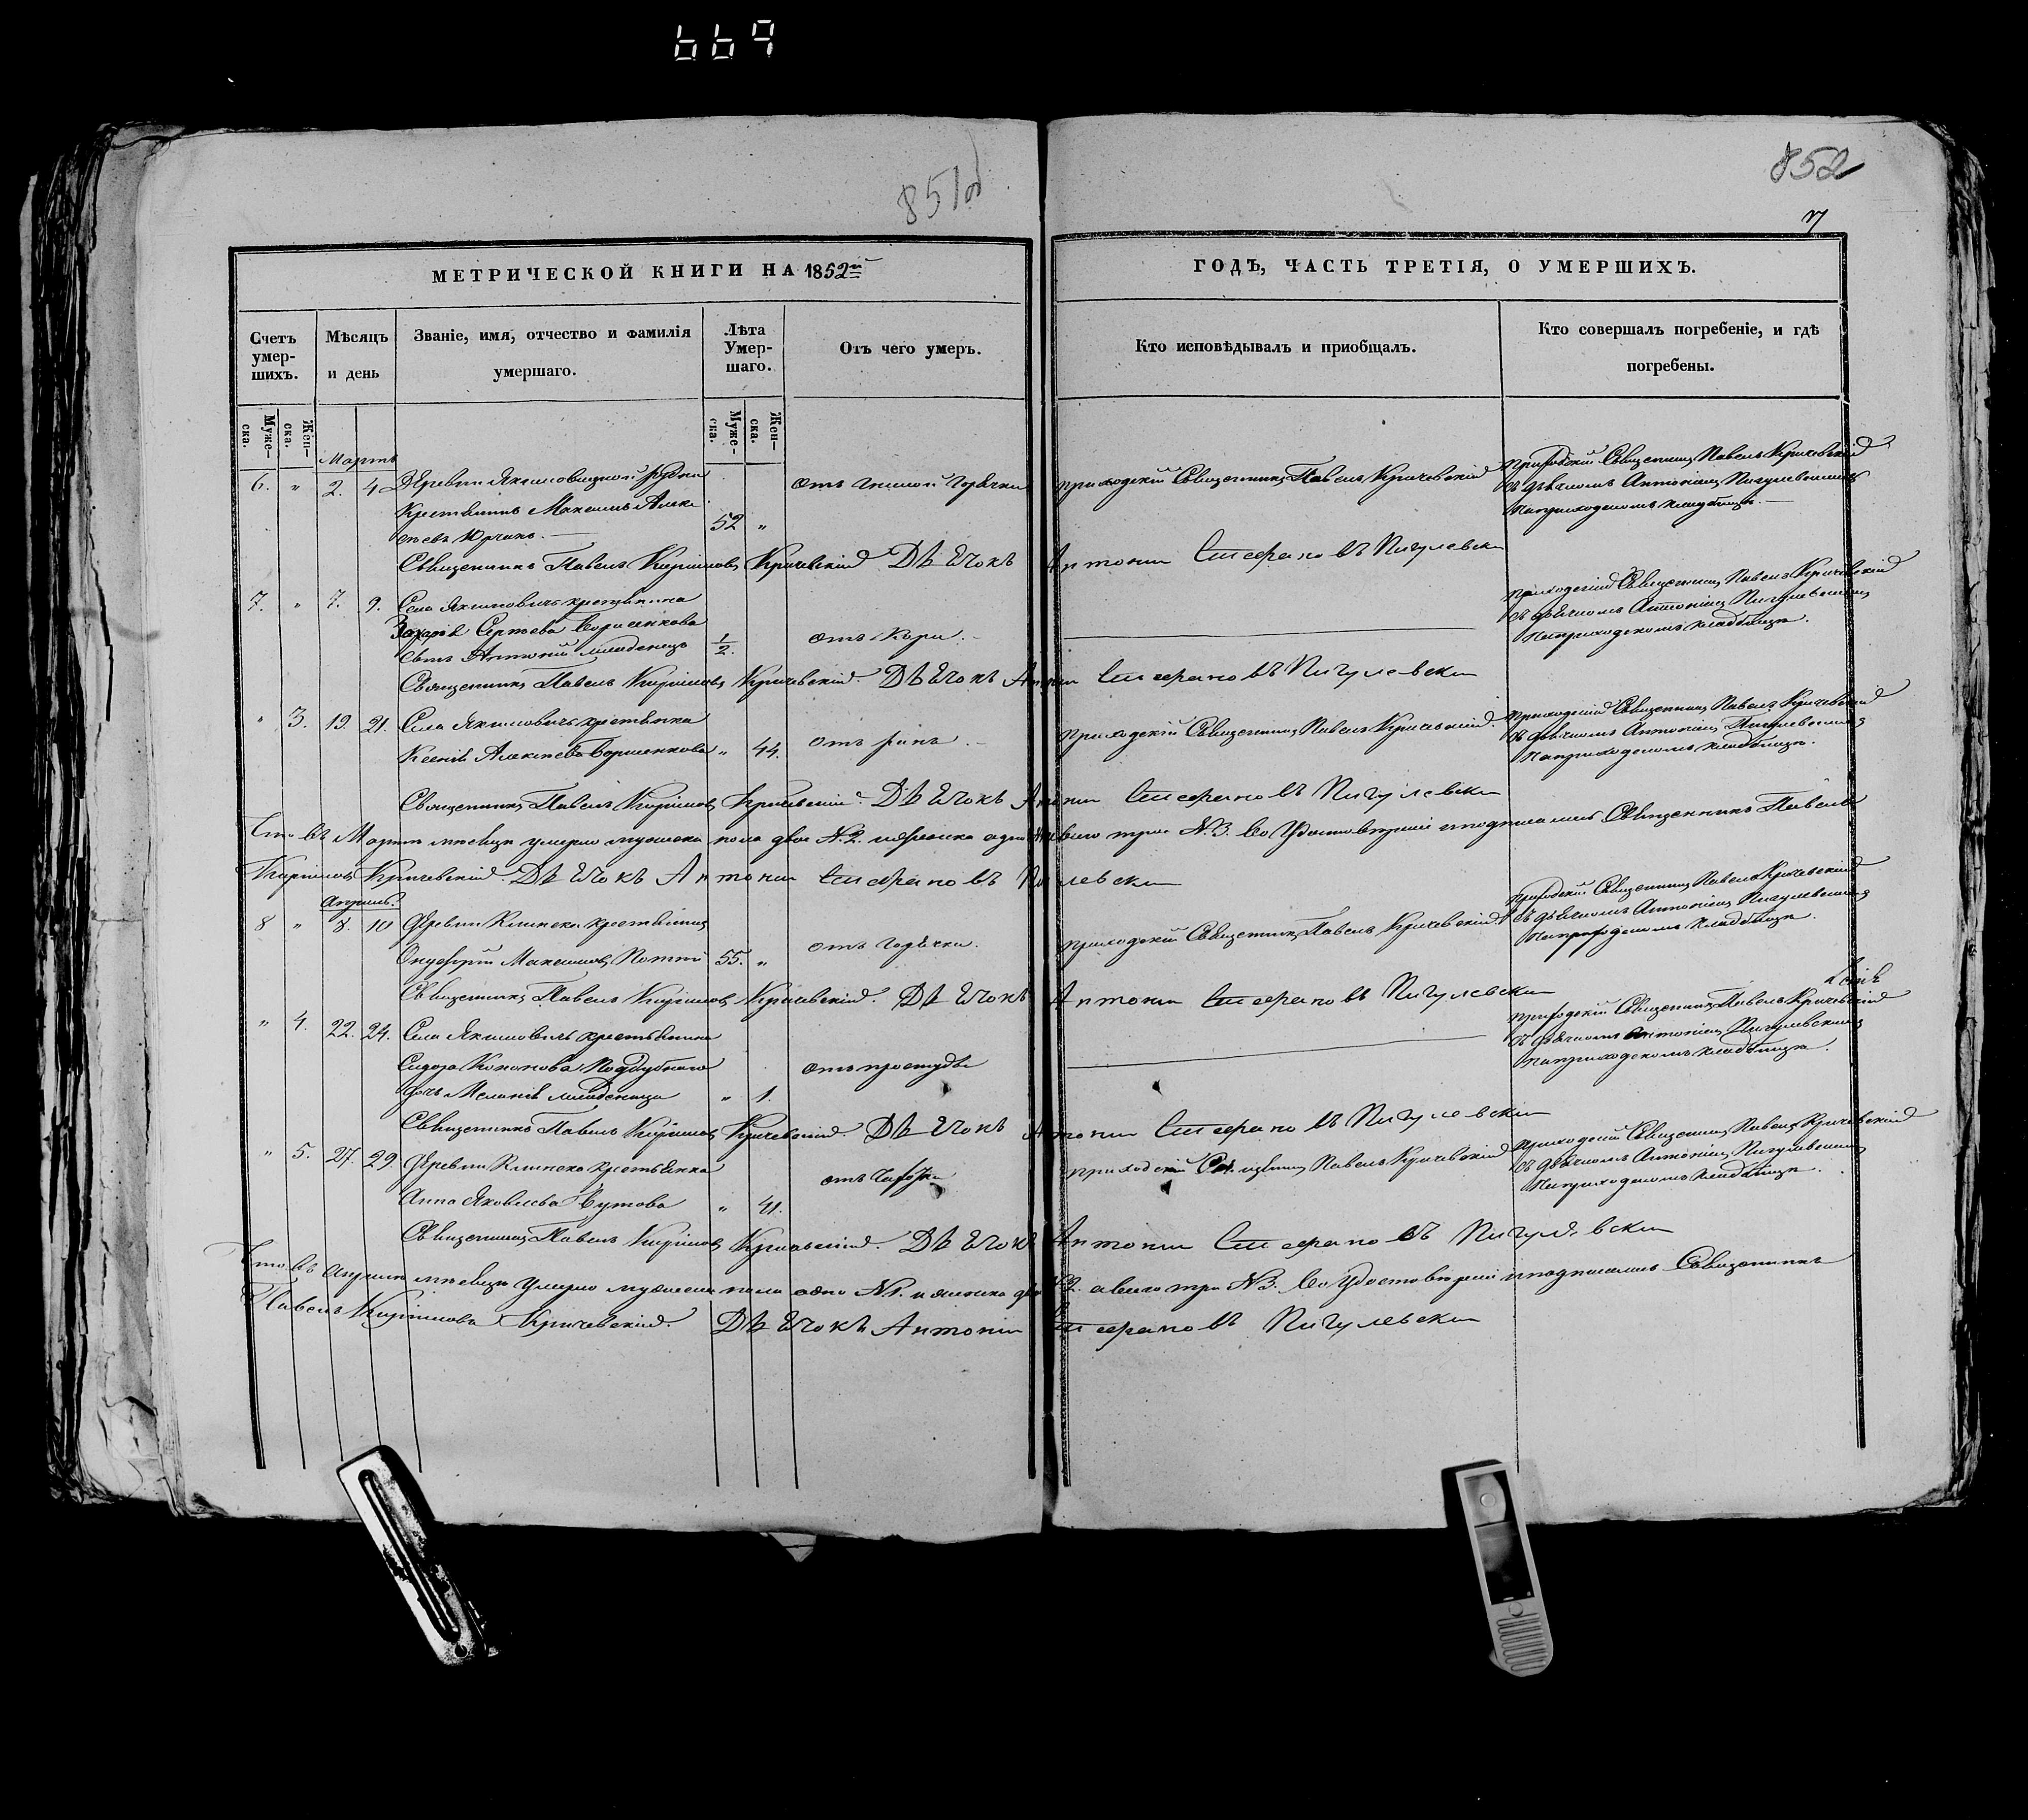 669
851об
852
7
МЕТРИЧЕСКОЙ КНИГИ НА 1852й
ГОДЪ, ЧАСТЬ ТРЕТІЯ, О УМЕРШИХЪ.
Счетъ умер-шихъ.
Мѣсяцъ и день
Званіе, имя, отчество и фамилія умершаго.
Лѣта Умер-шаго.
Отъ чего умеръ.
Кто исповѣдывалъ и приобщалъ.
Кто совершалъ погребеніе, и гдѣ погребены.
Муже-ска.
Жен-ска.
Муже-ска.
Жен-ска.
Мартъ
6. " 2. 4 Деревни Якимовицкой рудни
Крестьянинъ Максимъ Алек
сѣевъ Юрчакъ. 52 "
отъ гнилой горѣчки
приходскій Священникъ Павелъ Кричевскій
Приходскій Священникъ Павелъ Кричевскій
съ дьячкомъ Антоніемъ Пигулевскимъ
На приходскомъ кладбищѣ.
Священникъ Павелъ Киріиловъ Кричевскій. Дѣячокъ Антони Стефановъ Пигулевски
7. " 7. 9. Села Якимовичъ крестьянина
Захарія Сергѣева Борисенкова
сынъ Антоній младенецъ 1/2.
отъ Кори.
приходскій Священникъ Павелъ Кричевскій
съ дьячкомъ Антоніемъ Пигулевскимъ
На приходскомъ кладбищѣ.
Священникъ Павелъ Киріиловъ Кричевскій. Дѣячокъ Антони Стефановъ Пигулевски
" 3. 19 21. Села Якимовичъ крестьянка
Ксенія Алексѣева Борисенкова " 44.
отъ ранъ.
приходскій Священникъ Павелъ Кричевскій.
Приходскій Священникъ Павелъ Кричевскій
съ дьячкомъ Антоніемъ Пигулевскимъ
На приходскомъ кладбищѣ.
Священникъ Павелъ Киріиловъ Кричевскій. Дѣячокъ Антони Стефановъ Пигулевски
Что въ Мартѣ мѣсяцѣ умерло мужеска пола двое №2. и женска одна а всего трое №3. Во Удостовѣреніе и подписались Священникъ Павелъ
Киріиловъ Кричевскій. Дѣячокъ Антони Стефановъ Пигулевски
Апрѣль.
8 " 8. 10 Деревни Клинска крестьянинъ
Онуфрій Максимовъ 55. "
отъ горѣчки.
приходскій Священникъ Павелъ Кричевскій.
приходскій Священникъ Павелъ Кричевскій
съ дьячкомъ Антоніемъ Пигулевскимъ
На приходскомъ кладбищѣ.
Священникъ Павелъ Киріиловъ Кричевскій. Дѣячокъ Антони Стефановъ Пигулевски
" 4. 22. 24. Села Якимовичъ крестьянина
Сидора Кононова Поддубнаго
дочь Меланія младеница " 1.
отъ простуды
приходскій Священникъ Павелъ Кричевскій
съ дьячкомъ Антоніемъ Пигулевскимъ
на приходскомъ кладбищѣ.
Священникъ Павелъ Киріиловъ Кричевскій. Дѣячокъ Антони Стефановъ Пигулевски
" 5. 27. 29. Деревни Клинска крестьянка
Анна Яковлева " 41.
отъ
приходскій Священникъ Павелъ Кричевскій
приходскій Священникъ Павелъ Кричевскій
съ дьячкомъ Антоніемъ Пигулевскимъ
На приходскомъ кладбищѣ.
Священникъ Павелъ Киріиловъ Кричевскій. Дѣячокъ Антони Стефановъ Пигулевски
Что въ Апрѣлѣ мѣсяцѣ умерло мужеска пола одно №1. и женска двое №2. а всего три №3. Во Удостовѣреніе и подписались Священникъ
Павелъ Киріиловъ Кричевскій. Дѣячокъ Антони Стефановъ Пигулевски